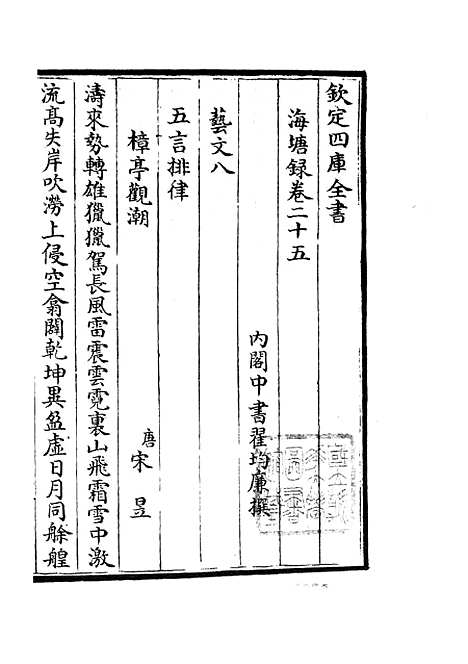 欽定四庫全書
海塘録卷二十五
內閣中書翟均廉撰
藝文八
五言排律
樟亭觀潮
唐宋昱
濤來勢轉雄獵獵駕長風雷震雲霓裏山飛霜雪中激
流髙失岸吹澇上侵空翕闢乾坤異盈虛日月同艅艎